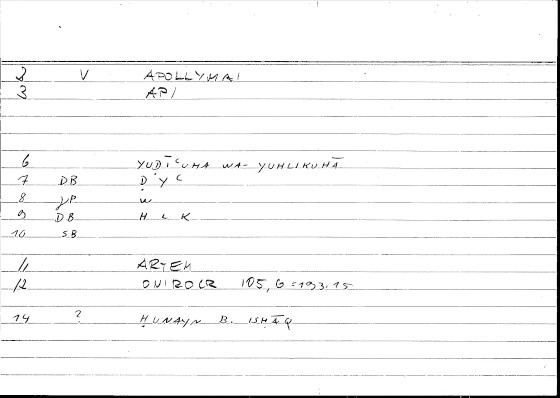 2 V APOLLYMAI
3 API
6 YUḌĪʿUHA WA-YUHLIKUHĀ
7 DB Ḍ Y ʿ
8 γP W
9 DB H L K
10 SB
11 ARTEM
12 ONIROCR 105, 6 = 193.15
14 ? ḤUNAYN B. ISḤĀQ